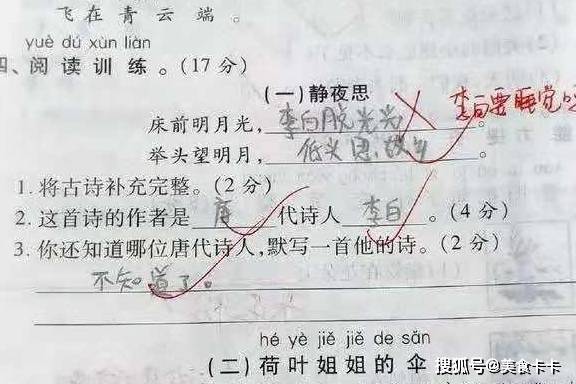 飞在青云端。
yuè dú xùn liàn
四、阅读训练。(17分)
(一)静夜思
床前明月光,李白脱光光。
李白要睡觉吗
举头望明月,低头思故乡。
1.将古诗补充完整。(2分)
2.这首诗的作者是唐代诗人李白。(4分)
3.你还知道哪位唐代诗人,默写一首他的诗。(2分)
不知道了。
hé yè jiě jiě de sǎn
(二)荷叶姐姐的伞
搜狐号@美食卡卡